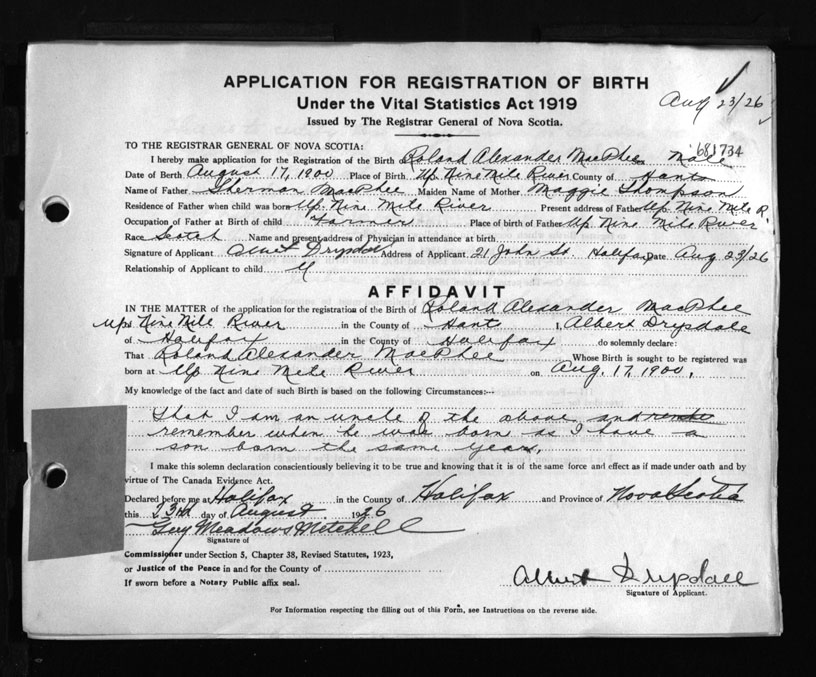 APPLICATION FOR REGISTRATION OF BIRTH
Under the Vital Statistics Act 1919
Aug 23/26
Issued by The Registrar General of Nova Scotia.
681734
TO THE REGISTRAR GENERAL OF NOVA SCOTIA:
I hereby make application for the Registration of the Birth of Roland Alexander MacPhee Male
Date of Birth August 17, 1900 Place of Birth Up. Nine Mile River County of Hants
Name of Father Sherman MacPhee Maiden Name of Mother Maggie Thompson
Residence of Father when child was born Up. Nine Mile River Present address of Father Up. Nine Mile R.
Occupation of Father at Birth of child Farmer Place of birth of Father Up Nine Mile River
Race Scotch Name and present address of Physician in attendance at birth
Signature of Applicant Albert Drysdale Address of Applicant 21 John St. Halifax Date Aug 23/26
Relationship of Applicant to child
AFFIDAVIT
IN THE MATTER of the application for the registration of the Birth of Roland Alexander MacPhee
Up. Nine Mile River in the County of Hant I, Albert Drysdale
of Halifax in the County of Halifax do solemnly declare:
That Roland Alexander MacPhee Whose Birth is sought to be registered was
born at Up Nine Mile River on Aug. 17, 1900,
My knowledge of the fact and date of such Birth is based on the following Circumstances:—
that I am an uncle of the above, and
remember when he was born as I have a
son born the same year.
I make this solemn declaration conscientiously believing it to be true and knowing that it is of the same force and effect as if made under oath and by
virtue of The Canada Evidence Act.
Declared before me at Halifax in the County of Halifax and Province of Nova Scotia
this 23rd day of August 1926
Guy Meadows Mitchell
Signature of
Commissioner under Section 5, Chapter 38, Revised Statutes, 1923,
or Justice of the Peace in and for the County of
If sworn before a Notary Public affix seal.
Albert Drysdale
Signature of Applicant.
For Information respecting the filling out of this Form, see Instructions on the reverse side.